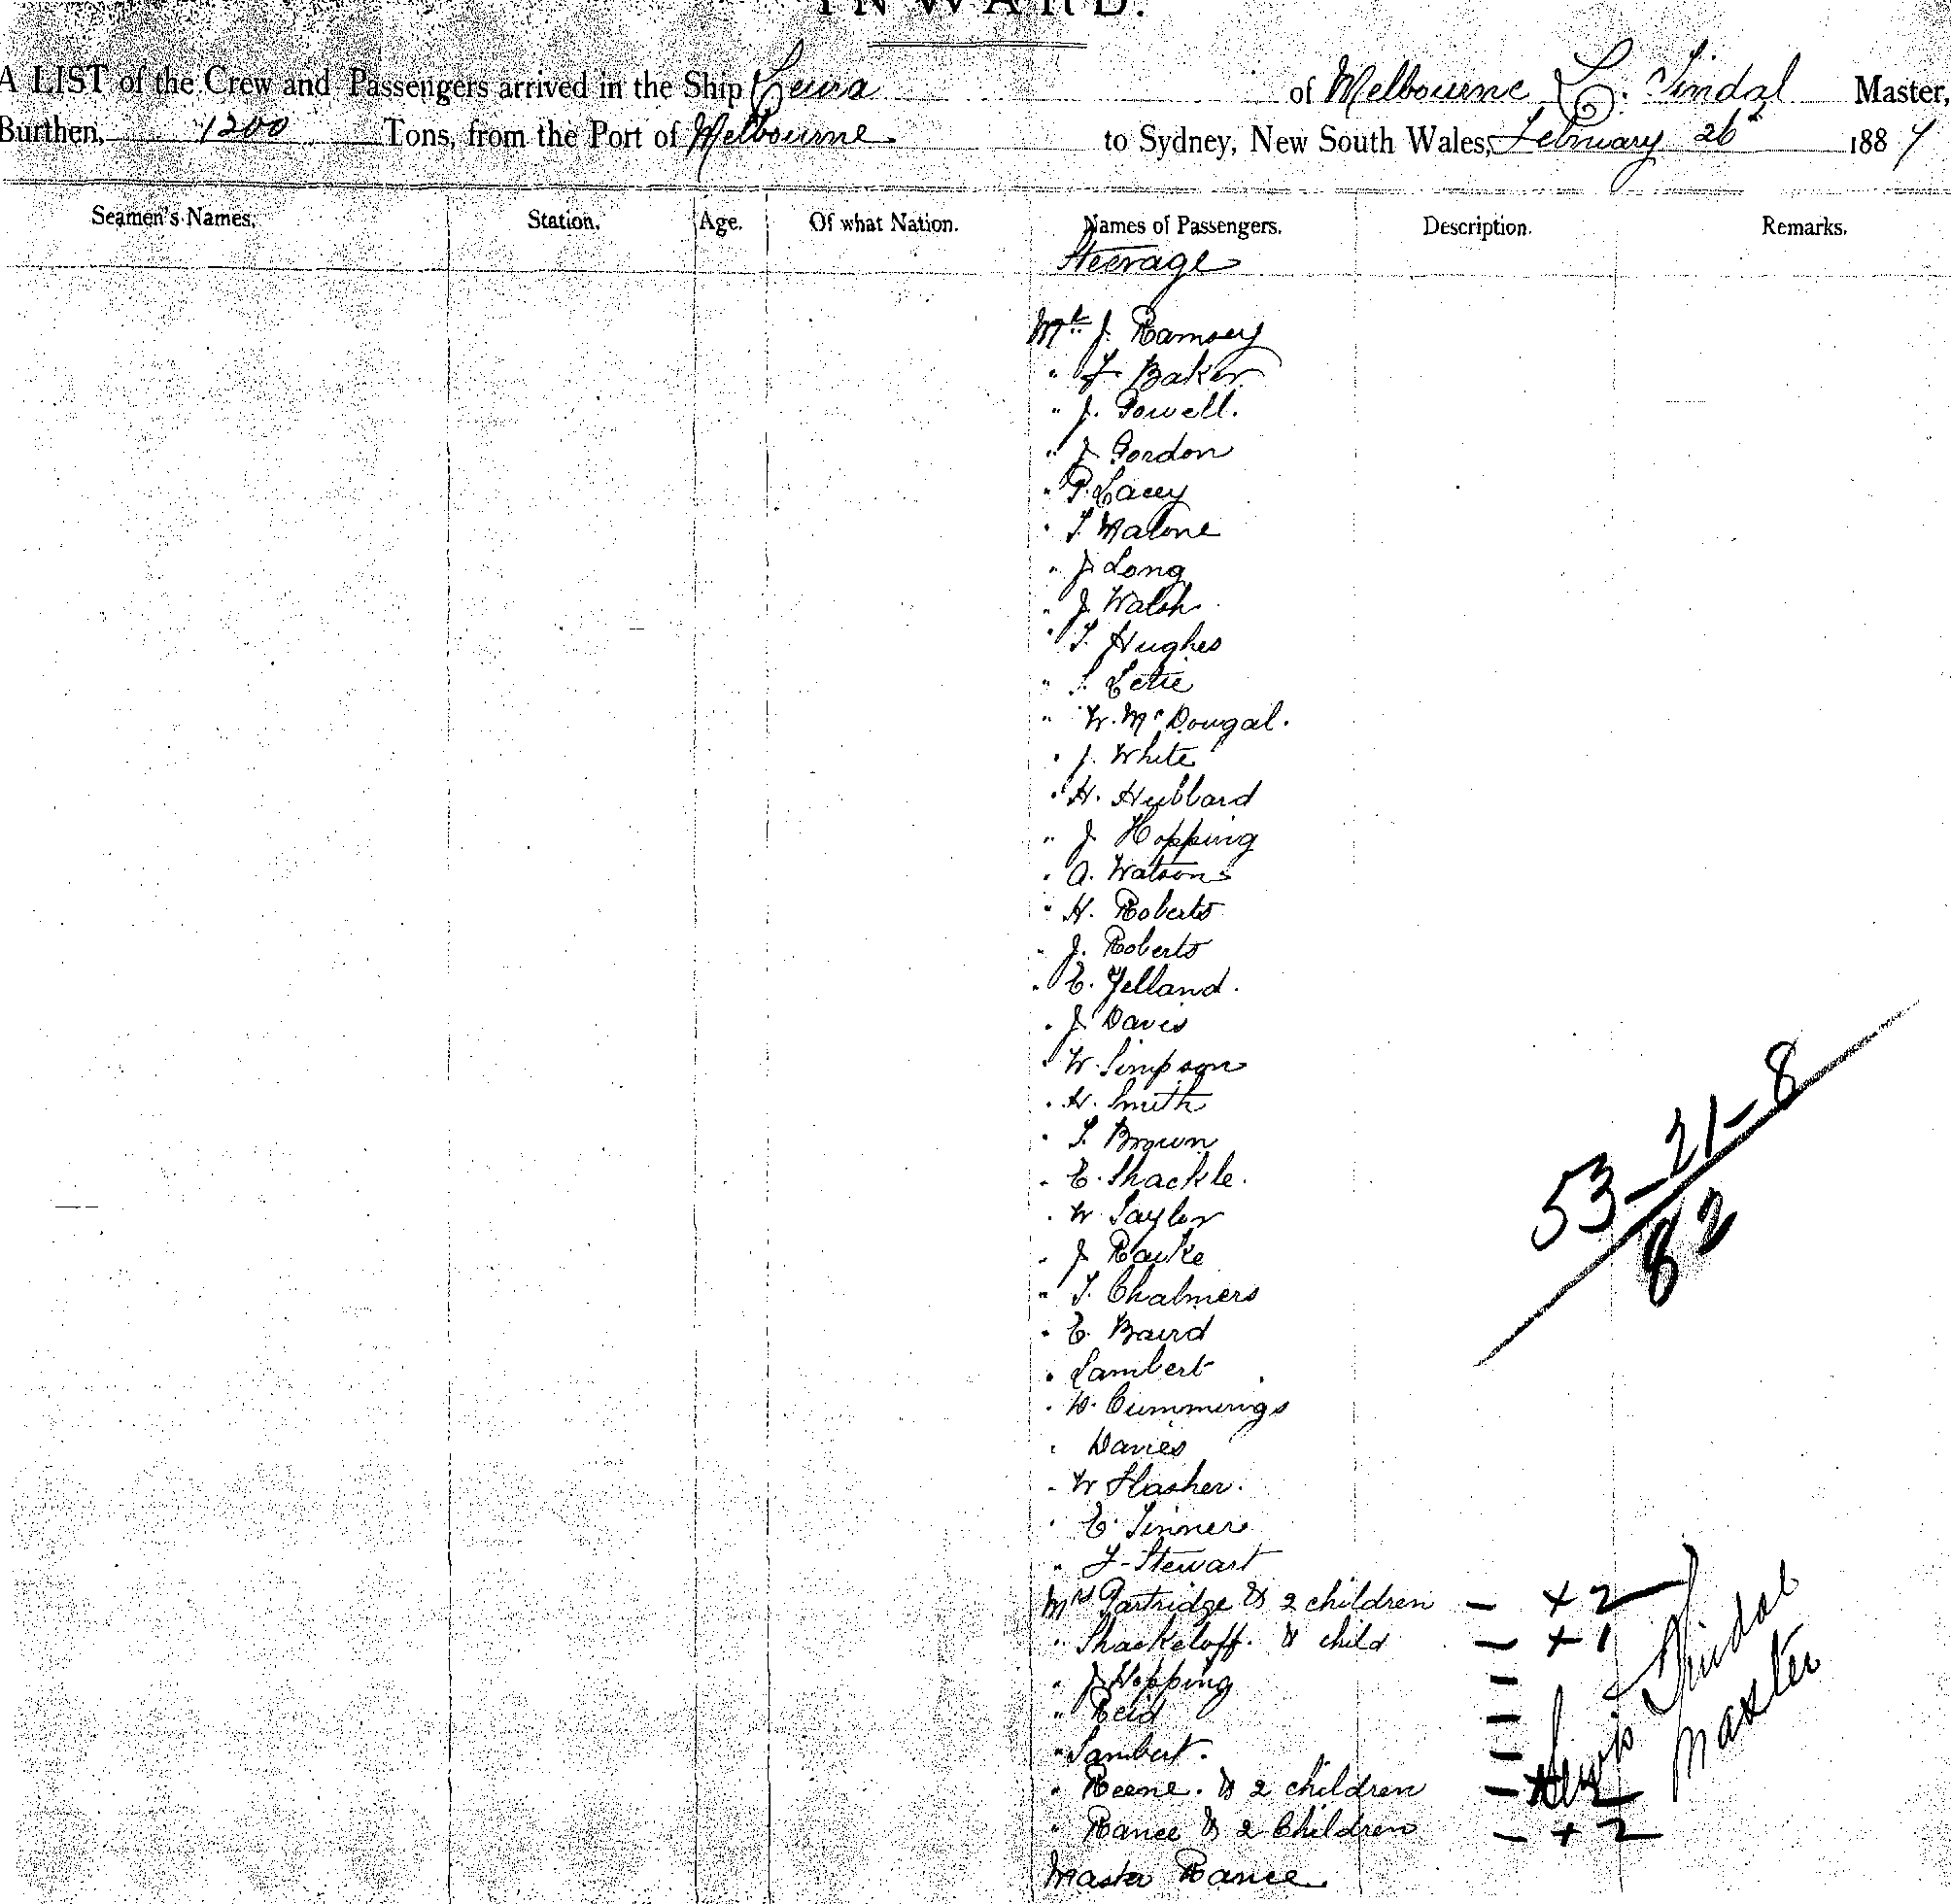 INWARD.
A LIST of the Crew and Passengers arrived in the Ship Leura of Melbourne L. Tindal Master,
Burthen, 1200 Tons, from the Port of Melbourne. to Sydney, New South Wales, February 26 1887
Seamen's Names. Station. Age. Of what Nation. Names of Passengers. Description. Remarks.
Steerage
Mr J. Ramsey
" F. Baker
" J. Powell.
" J. Gordon
" P. Lacey
" T. Malone
" J. Long
" J. Walsh
" T. Hughes
" W. McDougal.
" J. White
" H. Hubbard
" J. Hopping
" A. Watson
" H. Roberts
" J. Roberts
" E. Yelland.
" J. Davis
" W. Simpson
" H. Smith
" T. Brown
" E. Shackle.
" W. Taylor
" J.
" T. Chalmers
" E. Baird
" Lambert
" W. Cummings
" Davies
" W Flasher.
" E. Tinner
" F. Stewart
Mrs Partridge & 2 children - + 2
" Shackeloff. & child - + 1
" J. Hopping -
" Reid -
" Lambert. -
" Reene. & 2 children - + 2
" Rance & 2 Children - + 2
Master Rance
53 - 21 - 8
82
Lewis Tindal
Master